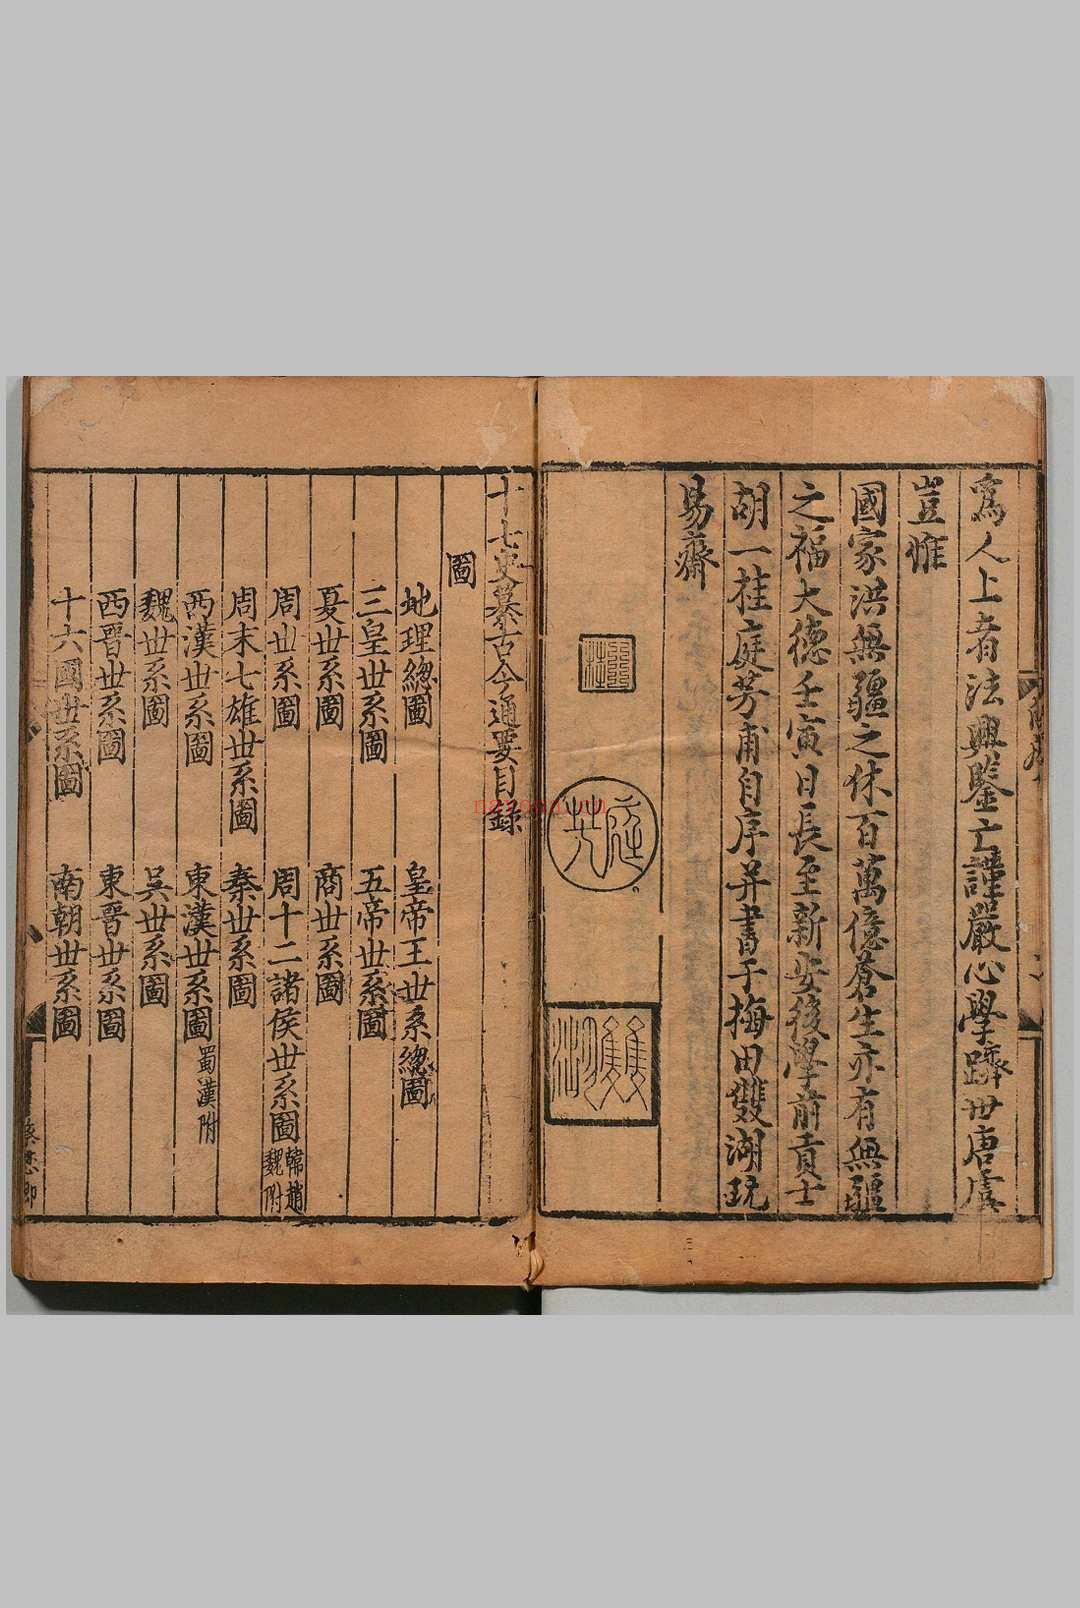 爲人上者法興鑒亡謹嚴心學躋世唐虞
豈惟
國家洪無疆之休百萬億蒼生亦有無疆
之福大德壬寅日長至新安後學前貢士
胡一桂庭芳甫自序并書于梅田雙湖玩
易齋
庭芳
雙湖
十七史纂古今通要目錄
圖
地理總圖 皇帝王世系總圖
三皇世系圖 五帝世系圖
夏世系圖 商世系圖
周世系圖 周十二諸侯世系圖韓趙魏附
周末七雄世系圖 秦世系圖
西漢世系圖 東漢世系圖蜀漢附
魏世系圖 吳世系圖
西晉世系圖 東晉世系圖
十六國世系圖 南朝世系圖